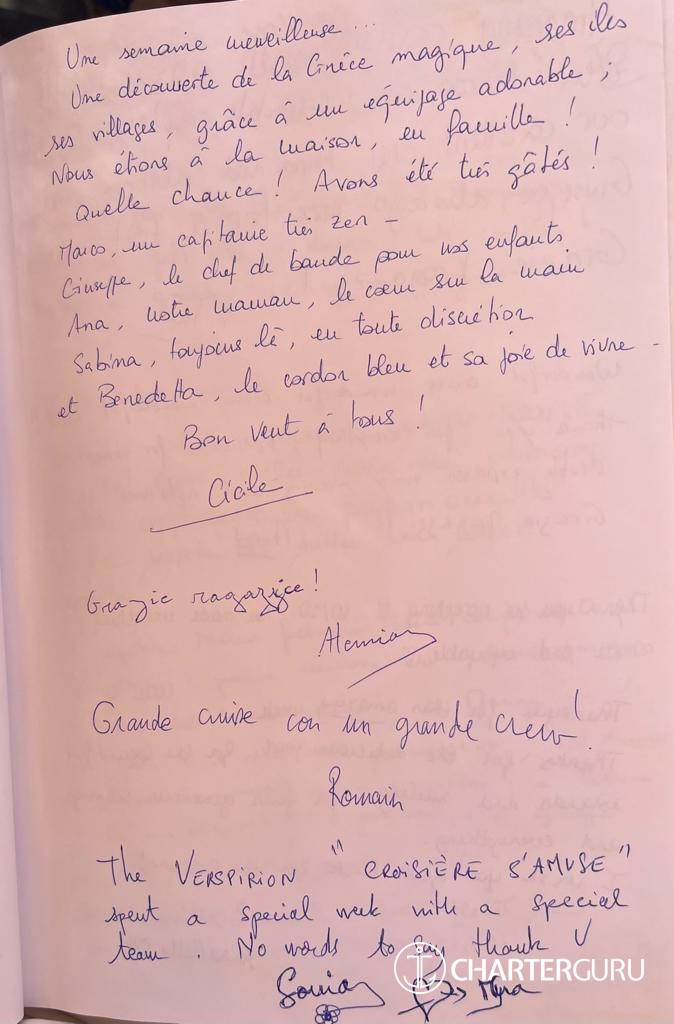 Une semaine merveilleuse...
Une découverte de la Grèce magique, ses îles
ses villages, grâce à un équipage adorable ;
Nous étions à la maison, en famille !
Quelle chance ! Avons été très gâtés !
Marco, un capitaine très zen –
Giuseppe, le chef de bande pour nos enfants
Ana, notre maman, le cœur sur la main
Sabina, toujours là, en toute discrétion
et Benedetta, le cordon bleu et sa joie de vivre –
Bon vent à tous !
Cécile
Grazie ragazze !
Grande cruise con un grande crew !
Romain
The VERSPIRION " CROISIÈRE S'AMUSE "
spent a special week with a special
team. No words to say thank U
Sonia
CHARTERGURU